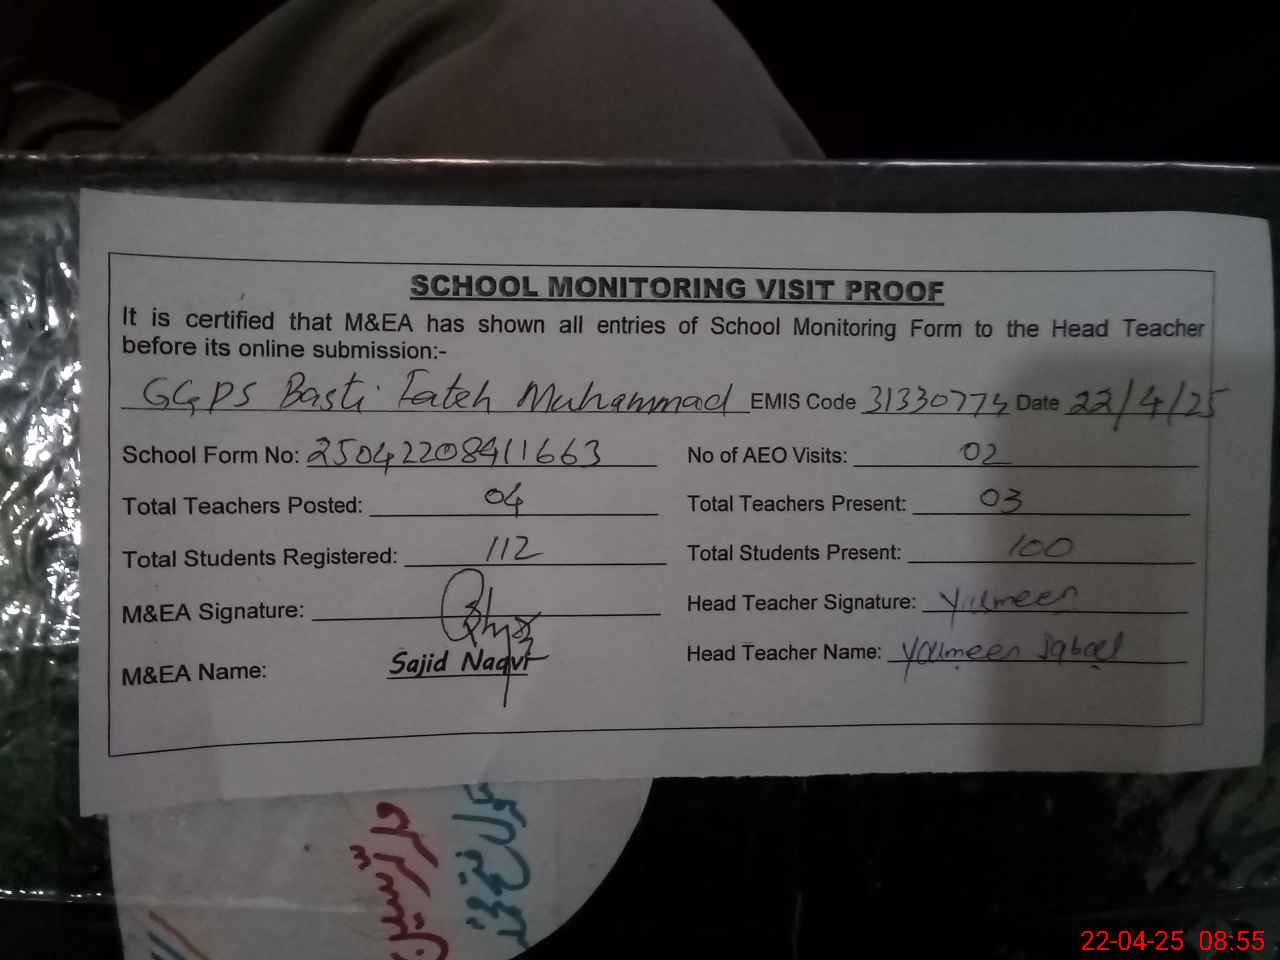 SCHOOL MONITORING VISIT PROOF
It is certified that M&EA has shown all entries of School Monitoring Form to the Head Teacher
before its online submission:-
GGPS Basti Fateh Muhammad EMIS Code 31330774 Date 22/4/25
School Form No: 25042208411663 No of AEO Visits: 02
Total Teachers Posted: 04 Total Teachers Present: 03
Total Students Registered: 112 Total Students Present: 100
M&EA Signature: Head Teacher Signature: Yasmeen
M&EA Name: Sajid Naqvi Head Teacher Name: Yasmeen Iqbal
22-04-25 08:55